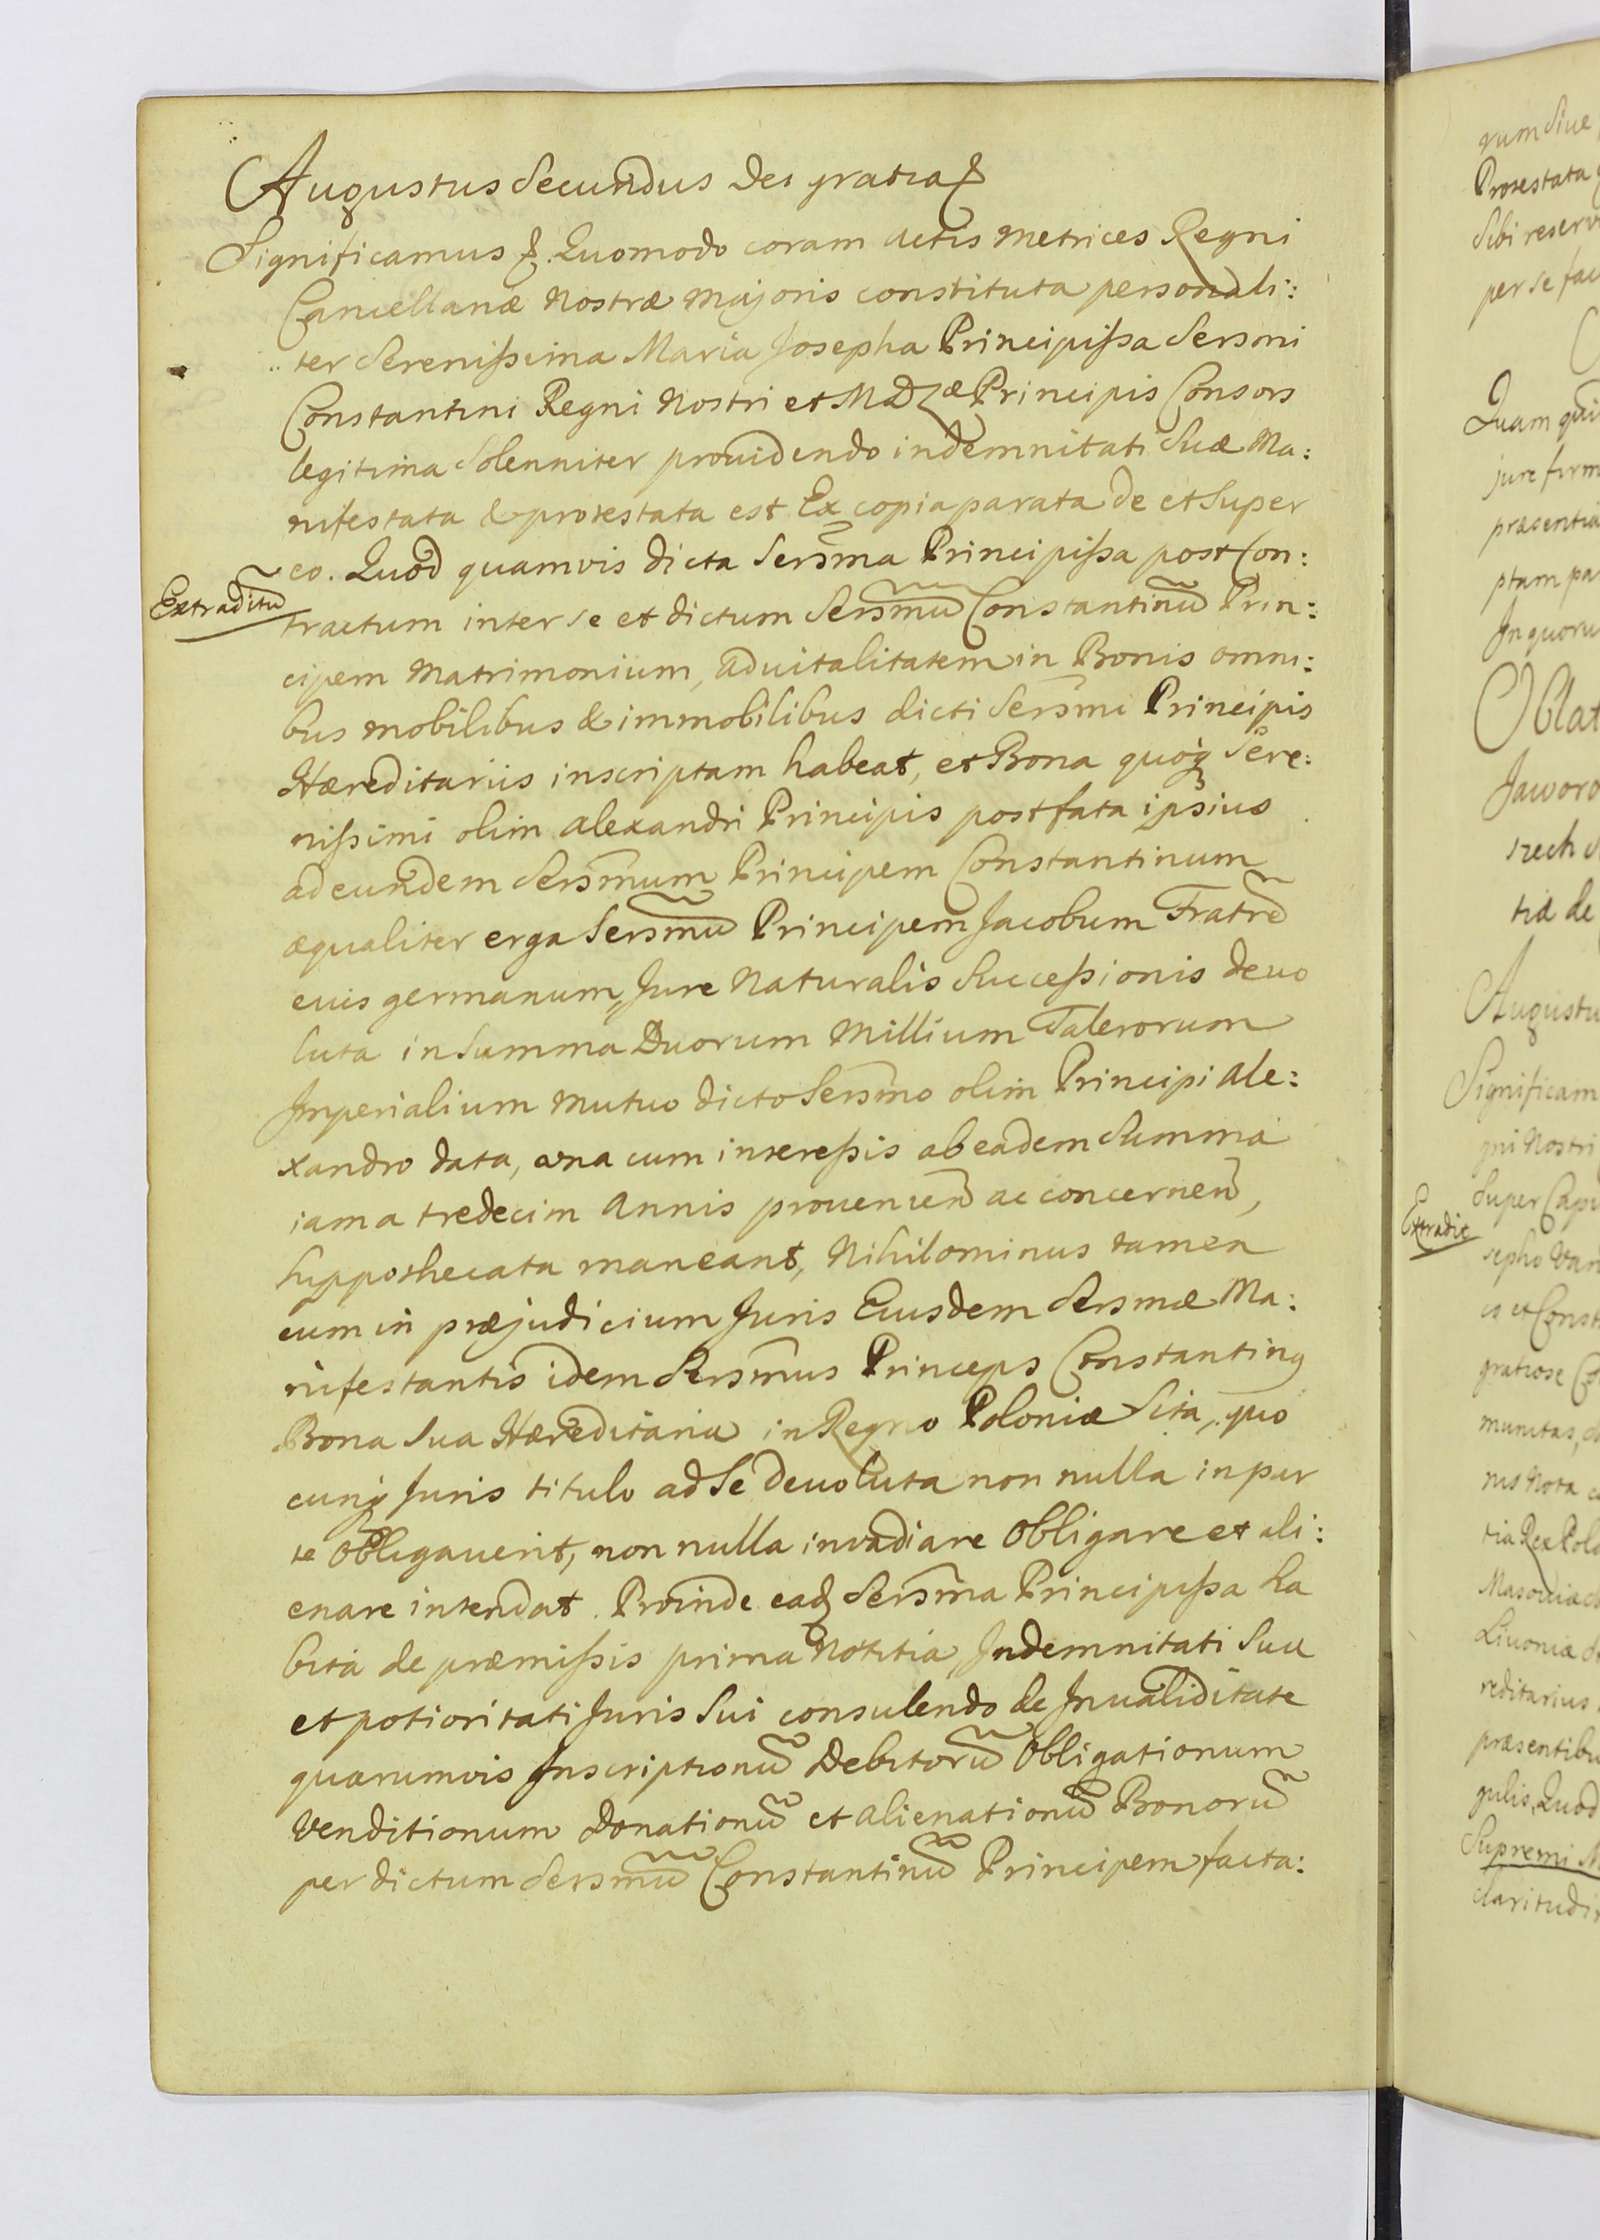 Augustus Secundus Dei gratia &
Significamus &. Quomodo coram actis Metrices Regni
Cancellariæ Nostræ Majoris constituta personali:
ter Serenißima Maria Josepha Principißa Sersmi
Constantini Regni Nostri et MDLæ Principis Consors
legitima Solenniter prouidendo indemnitati Suæ Ma:
nifestata & protestata est Ex copia parata de et Super
eo. Quod quamvis dicta Sersma Principißa post Con:
Extraditũ
tractum inter se et dictum Sersmũ Constantinũ Prin:
cipem Matrimonium, aduitalitatem in Bonis omni:
bus mobilibus & immobilibus dicti Sersmi Principis
Hæreditariis inscriptam habeat, et Bona quoq Sere:
nißimi olim Alexandri Principis post fata ipsius
ad eundem Sersmum Principem Constantinum
æqualiter erga Sersmũ Principem Jacobum Fratrẽ
eius germanum, Jure Naturalis Succeßionis deuo
luta in Summa Duorum Millium Talerorum
Imperialium Mutuo dicto Sersmo olim Principi Ale:
xandro data, una cum intereßis ab eadem Summa
iam a tredecim Annis prouenieñ ac concerneñ,
hyppothecata maneant, Nihilominus tamen
cum in præjudicium Juris Eiusdem Sersmæ Ma:
nifestantis idem Sersmus Princeps Constantinq
Bona Sua Hæreditaria in Regno Poloniæ Sita, quo
cunq Juris titulo ad Se deuoluta non nulla in par
te Obligauerit, non nulla invadiare Obligare et ali:
enare intendat. Proinde eadq Sersma Principißa ha
bita de præmißis prima Notitia, Indemnitati Suæ
et potioritati Juris Sui consulendo de Inualiditate
quarumvis Inscriptionũ Debitorũ Obligationum
Venditionum Donationũ et alienationũ Bonorũ
per dictum Sersmũ Constantinũ Principem facta:
rum Siue
Protestata
Sibi reserv
per se fac
Quam qui
jure firm
præsentia
ptam pa
In quoru
Oblat
Jaworo
szech
tiæ de
Augustu
Significam
gni Nostri
Super Capi
Extradit
sepho
is et Const
gratiose
munitas,
ris Nota
tia Rex Polo
Masouiæ
Liuoniæ
reditarius
præsentibu
gulis, Quod
Supremi M
claritudi